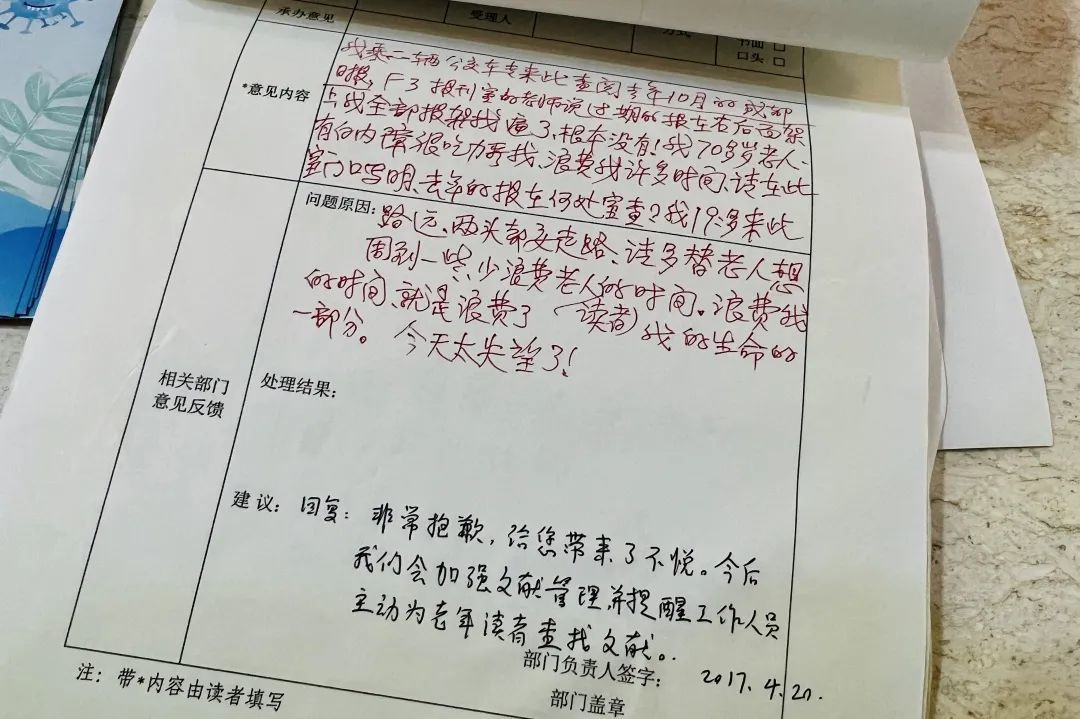 承办意见
受理人
方式
书面 □
口头 □
*意见内容
我乘二辆公交车专来此查阅去年10月的成都
F3报刊室的老师说过期的报在右后面架
上我全部报架找遍了、根本没有!我70多岁老人、
有白内障很吃力寻找、浪费我许多时间、请在此
室门口写明、去年的报在何处室查?我19:多来此
问题原因:
路远、两头都要走路、请多替老人想
周到一些、少浪费老人的时间。浪费我
的时间、就是浪费了(读者)我的生命的
一部分。今天太失望了!
相关部门
意见反馈
处理结果:
建议: 回复:非常抱歉,给您带来了不悦。今后
我们会加强文献管理,并提醒工作人员
主动为老年读者查找文献。
部门负责人签字: 2017.4.20.
部门盖章
注:带*内容由读者填写